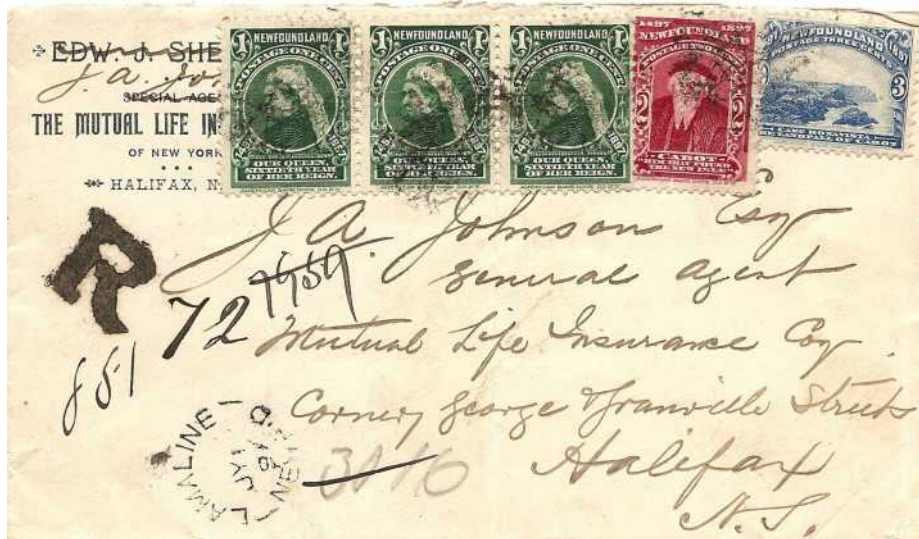 EDW. J. SHE
J. A.
SPECIAL AGE
THE MUTUAL LIFE INS
OF NEW YORK
HALIFAX, N.
1 NEWFOUNDLAND 1
POSTAGE ONE CENT
OUR QUEEN,
SIXTIETH YEAR
OF HER REIGN.
1 NEWFOUNDLAND 1
POSTAGE ONE CENT
OUR QUEEN,
SIXTIETH YEAR
OF HER REIGN.
1 NEWFOUNDLAND 1
POSTAGE ONE CENT
OUR QUEEN,
SIXTIETH YEAR
OF HER REIGN.
1497 1897
NEWFOUNDLAND
POSTAGE TWO
2 2
CABOT
HYM THAT FOUND
THE NEW ISLE
NEWFOUNDLAND
POSTAGE THREE CENTS
3
CAPE BONAVISTA
OF CABOT
J. A. Johnson Esq
General Agent
Mutual Life Insurance Coy.
Corner George & Granville Streets
Halifax
N.S.
R
72
881
LAMALINE
JY
NEW